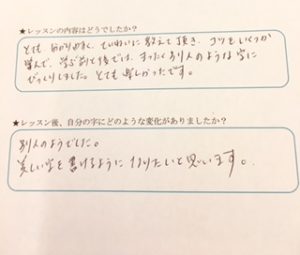 ★レッスンの内容はどうでしたか？
とても、分かりやすく、ていねいに教えて頂き、コツをいくつか
学んで、学ぶ前と後では、まったく別人のような字に
びっくりしました。とても楽しかったです。
★レッスン後、自分の字にどのような変化がありましたか？
別人のようでした。
美しい字を書けるようになりたいと思います。